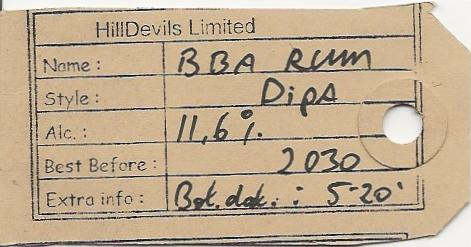 HillDevils Limited
Name : BBA RUM
Style : DipA
Alc. : 11,6 %.
Best Before : 2030
Extra info : Bot. dat. : 5-20'